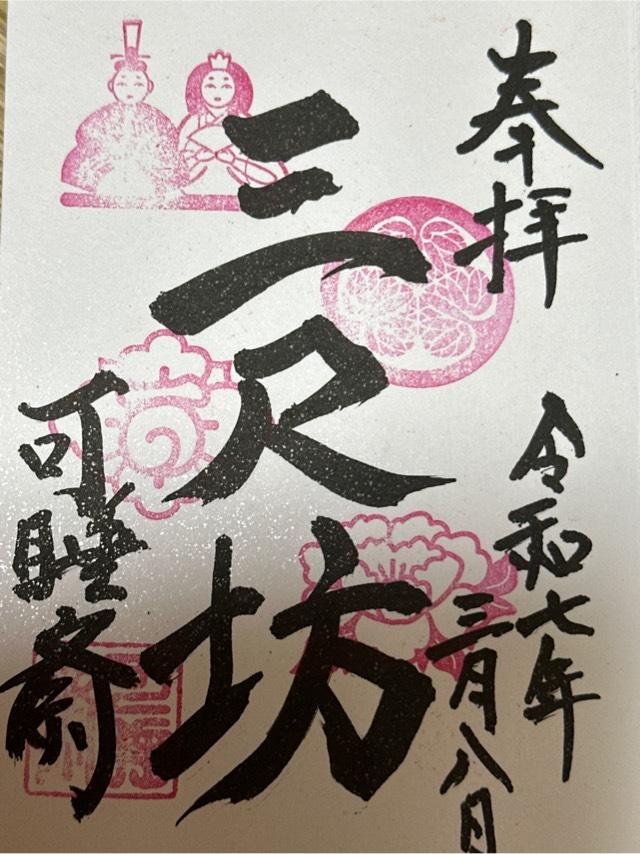 奉拝
令和七年
三月八日
三尺坊
可睡斎